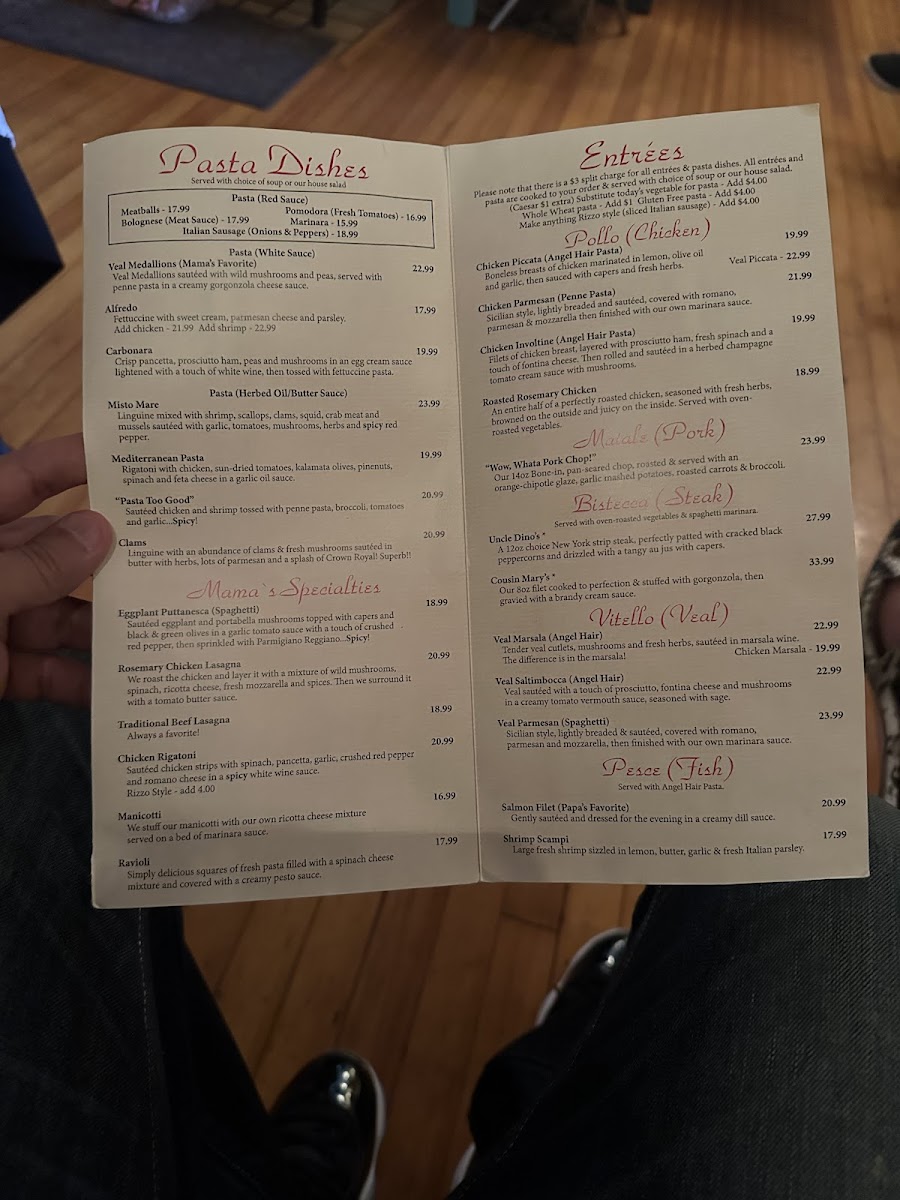 Pasta Dishes
Served with choice of soup or our house salad
Pasta (Red Sauce)
Meatballs - 17.99 Pomodora (Fresh Tomatoes) - 16.99
Bolognese (Meat Sauce) - 17.99 Marinara - 15.99
Italian Sausage (Onions & Peppers) - 18.99
Pasta (White Sauce)
Veal Medallions (Mama's Favorite) 22.99
Veal Medallions sautéed with wild mushrooms and peas, served with
penne pasta in a creamy gorgonzola cheese sauce.
Alfredo 17.99
Fettuccine with sweet cream, parmesan cheese and parsley.
Add chicken - 21.99 Add shrimp - 22.99
Carbonara 19.99
Crisp pancetta, prosciutto ham, peas and mushrooms in an egg cream sauce
lightened with a touch of white wine, then tossed with fettuccine pasta.
Pasta (Herbed Oil/Butter Sauce)
Misto Mare 23.99
Linguine mixed with shrimp, scallops, clams, squid, crab meat and
mussels sautéed with garlic, tomatoes, mushrooms, herbs and spicy red
pepper.
Mediterranean Pasta 19.99
Rigatoni with chicken, sun-dried tomatoes, kalamata olives, pinenuts,
spinach and feta cheese in a garlic oil sauce.
"Pasta Too Good" 20.99
Sautéed chicken and shrimp tossed with penne pasta, broccoli, tomatoes
and garlic...Spicy!
Clams 20.99
Linguine with an abundance of clams & fresh mushrooms sautéed in
butter with herbs, lots of parmesan and a splash of Crown Royal! Superb!!
Mama`s Specialties
Eggplant Puttanesca (Spaghetti) 18.99
Sautéed eggplant and portabella mushrooms topped with capers and
black & green olives in a garlic tomato sauce with a touch of crushed
red pepper, then sprinkled with Parmigiano Reggiano...Spicy!
Rosemary Chicken Lasagna 20.99
We roast the chicken and layer it with a mixture of wild mushrooms,
spinach, ricotta cheese, fresh mozzarella and spices. Then we surround it
with a tomato butter sauce.
Traditional Beef Lasagna 18.99
Always a favorite!
Chicken Rigatoni 20.99
Sautéed chicken strips with spinach, pancetta, garlic, crushed red pepper
and romano cheese in a spicy white wine sauce.
Rizzo Style - add 4.00
Manicotti 16.99
We stuff our manicotti with our own ricotta cheese mixture
served on a bed of marinara sauce.
Ravioli 17.99
Simply delicious squares of fresh pasta filled with a spinach cheese
mixture and covered with a creamy pesto sauce.
Entrées
Please note that there is a $3 split charge for all entrées & pasta dishes. All entrées and
pasta are cooked to your order & served with choice of soup or our house salad.
(Caesar $1 extra) Substitute today's vegetable for pasta - Add $4.00
Whole Wheat pasta - Add $1 Gluten Free pasta - Add $4.00
Make anything Rizzo style (sliced Italian sausage) - Add $4.00
Pollo (Chicken)
Chicken Piccata (Angel Hair Pasta) 19.99
Boneless breasts of chicken marinated in lemon, olive oil
and garlic, then sauced with capers and fresh herbs. Veal Piccata - 22.99
Chicken Parmesan (Penne Pasta) 21.99
Sicilian style, lightly breaded and sautéed, covered with romano,
parmesan & mozzarella then finished with our own marinara sauce.
Chicken Involtine (Angel Hair Pasta) 19.99
Filets of chicken breast, layered with prosciutto ham, fresh spinach and a
touch of fontina cheese. Then rolled and sautéed in a herbed champagne
tomato cream sauce with mushrooms.
Roasted Rosemary Chicken 18.99
An entire half of a perfectly roasted chicken, seasoned with fresh herbs,
browned on the outside and juicy on the inside. Served with oven-
roasted vegetables.
Maiale (Pork)
"Wow, Whata Pork Chop!" 23.99
Our 14oz Bone-in, pan-seared chop, roasted & served with an
orange-chipotle glaze, garlic mashed potatoes, roasted carrots & broccoli.
Bistecca (Steak)
Served with oven-roasted vegetables & spaghetti marinara.
Uncle Dino's * 27.99
A 12oz choice New York strip steak, perfectly patted with cracked black
peppercorns and drizzled with a tangy au jus with capers.
Cousin Mary's * 33.99
Our 8oz filet cooked to perfection & stuffed with gorgonzola, then
gravied with a brandy cream sauce.
Vitello (Veal)
Veal Marsala (Angel Hair) 22.99
Tender veal cutlets, mushrooms and fresh herbs, sautéed in marsala wine.
The difference is in the marsala! Chicken Marsala - 19.99
Veal Saltimbocca (Angel Hair) 22.99
Veal sautéed with a touch of prosciutto, fontina cheese and mushrooms
in a creamy tomato vermouth sauce, seasoned with sage.
Veal Parmesan (Spaghetti) 23.99
Sicilian style, lightly breaded & sautéed, covered with romano,
parmesan and mozzarella, then finished with our own marinara sauce.
Pesce (Fish)
Served with Angel Hair Pasta.
Salmon Filet (Papa's Favorite) 20.99
Gently sautéed and dressed for the evening in a creamy dill sauce.
Shrimp Scampi 17.99
Large fresh shrimp sizzled in lemon, butter, garlic & fresh Italian parsley.